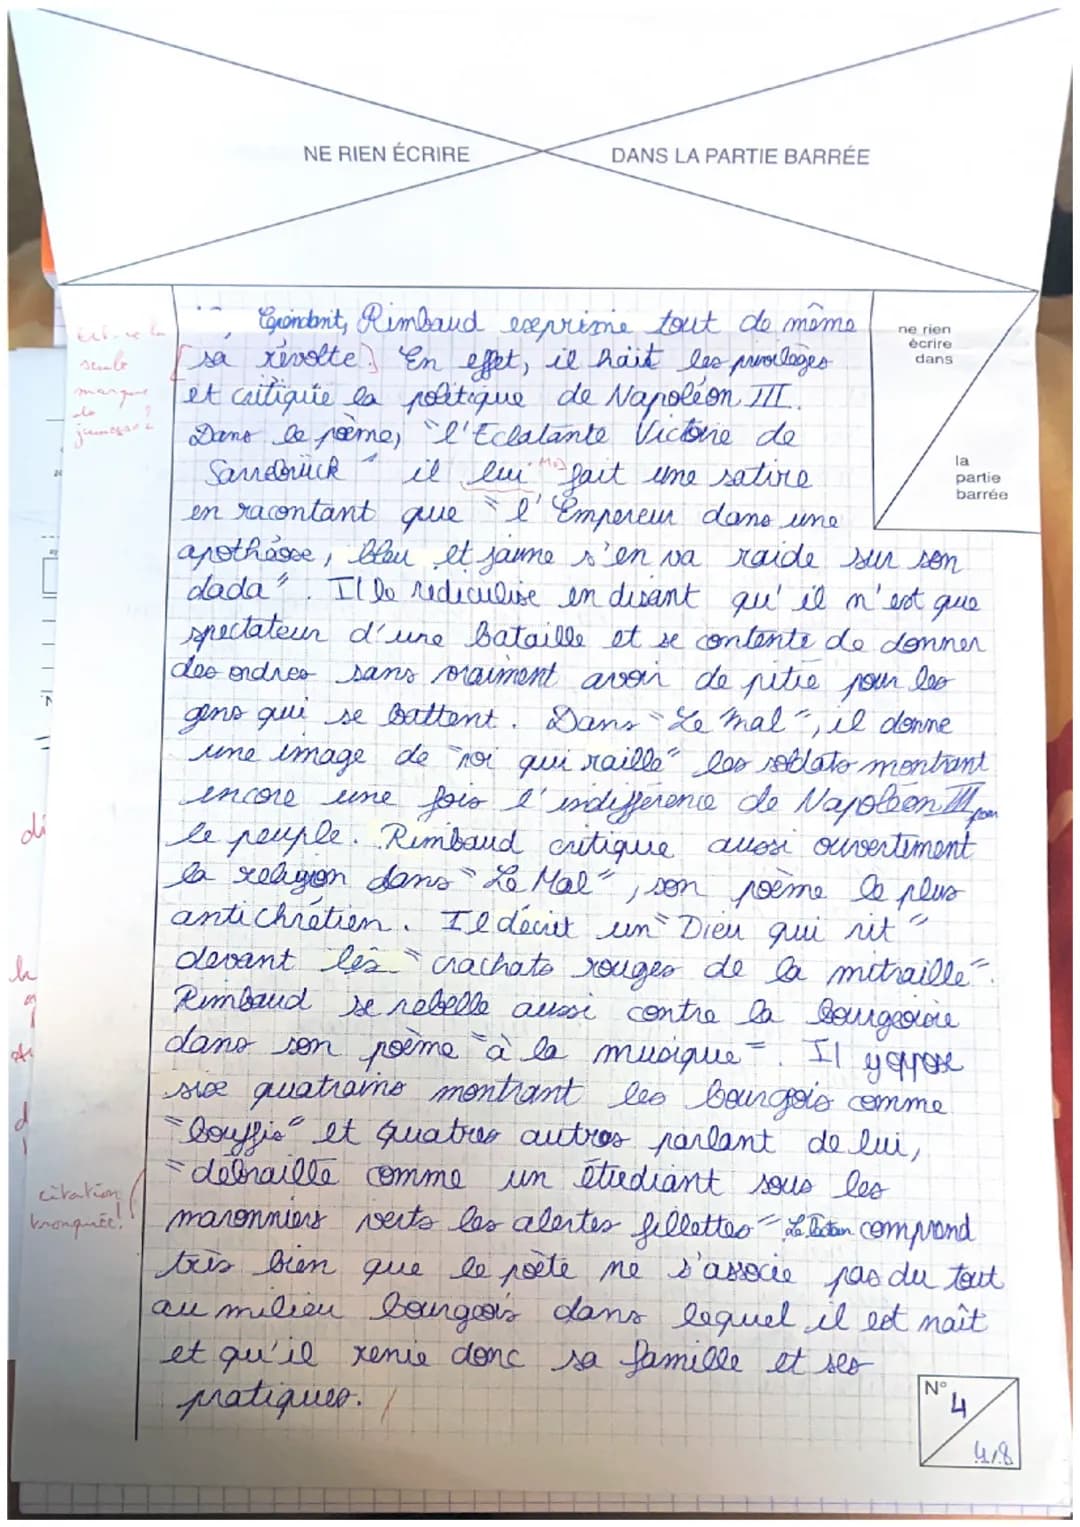 NE RIEN ÉCRIRE DANS LA PARTIE BARRÉE
ne rien
écrire
dans
la
partie
barrée
Cependant, Rimbaud exprime tout de même
[sa révolte.] En effet, il hait les privilèges
et critique la politique de Napoléon III.
Dans le poème, "l'Eclatante Victoire de
Sarrebrück" il lui fait une satire
en racontant que "l'Empereur dans une
apothéose, bleu et jaune s'en va raide sur son
dada". Il le rediculise en disant qu'il n'est que
spectateur d'une bataille et se contente de donner
des ordres sans vraiment avoir de pitié pour les
gens qui se battent. Dans "Le Mal", il donne
une image de "roi qui raille" les soldats montrant
encore une fois l'indifférence de Napoléon III pour
le peuple. Rimbaud critique aussi ouvertement
la religion dans "Le Mal", son poème le plus
antichrétien. Il décrit un "Dieu qui rit"
devant les "crachats rouges de la mitraille".
Rimbaud se rebelle aussi contre la bourgeoisie
dans son poème "à la musique". Il y oppose
six quatrains montrant les bourgeois comme
"bouffis" et quatres autres parlant de lui,
"débraillé comme un étudiant sous les
maronniers verts les alertes fillettes" Le lecteur comprend
très bien que le poète ne s'associe pas du tout
au milieu bourgeois dans lequel il est naît
et qu'il renie donc sa famille et ses
pratiques. /
Est-ce la
seule
marque
de
jeunesse ?
citation
tronquée!
N°
4
4/8